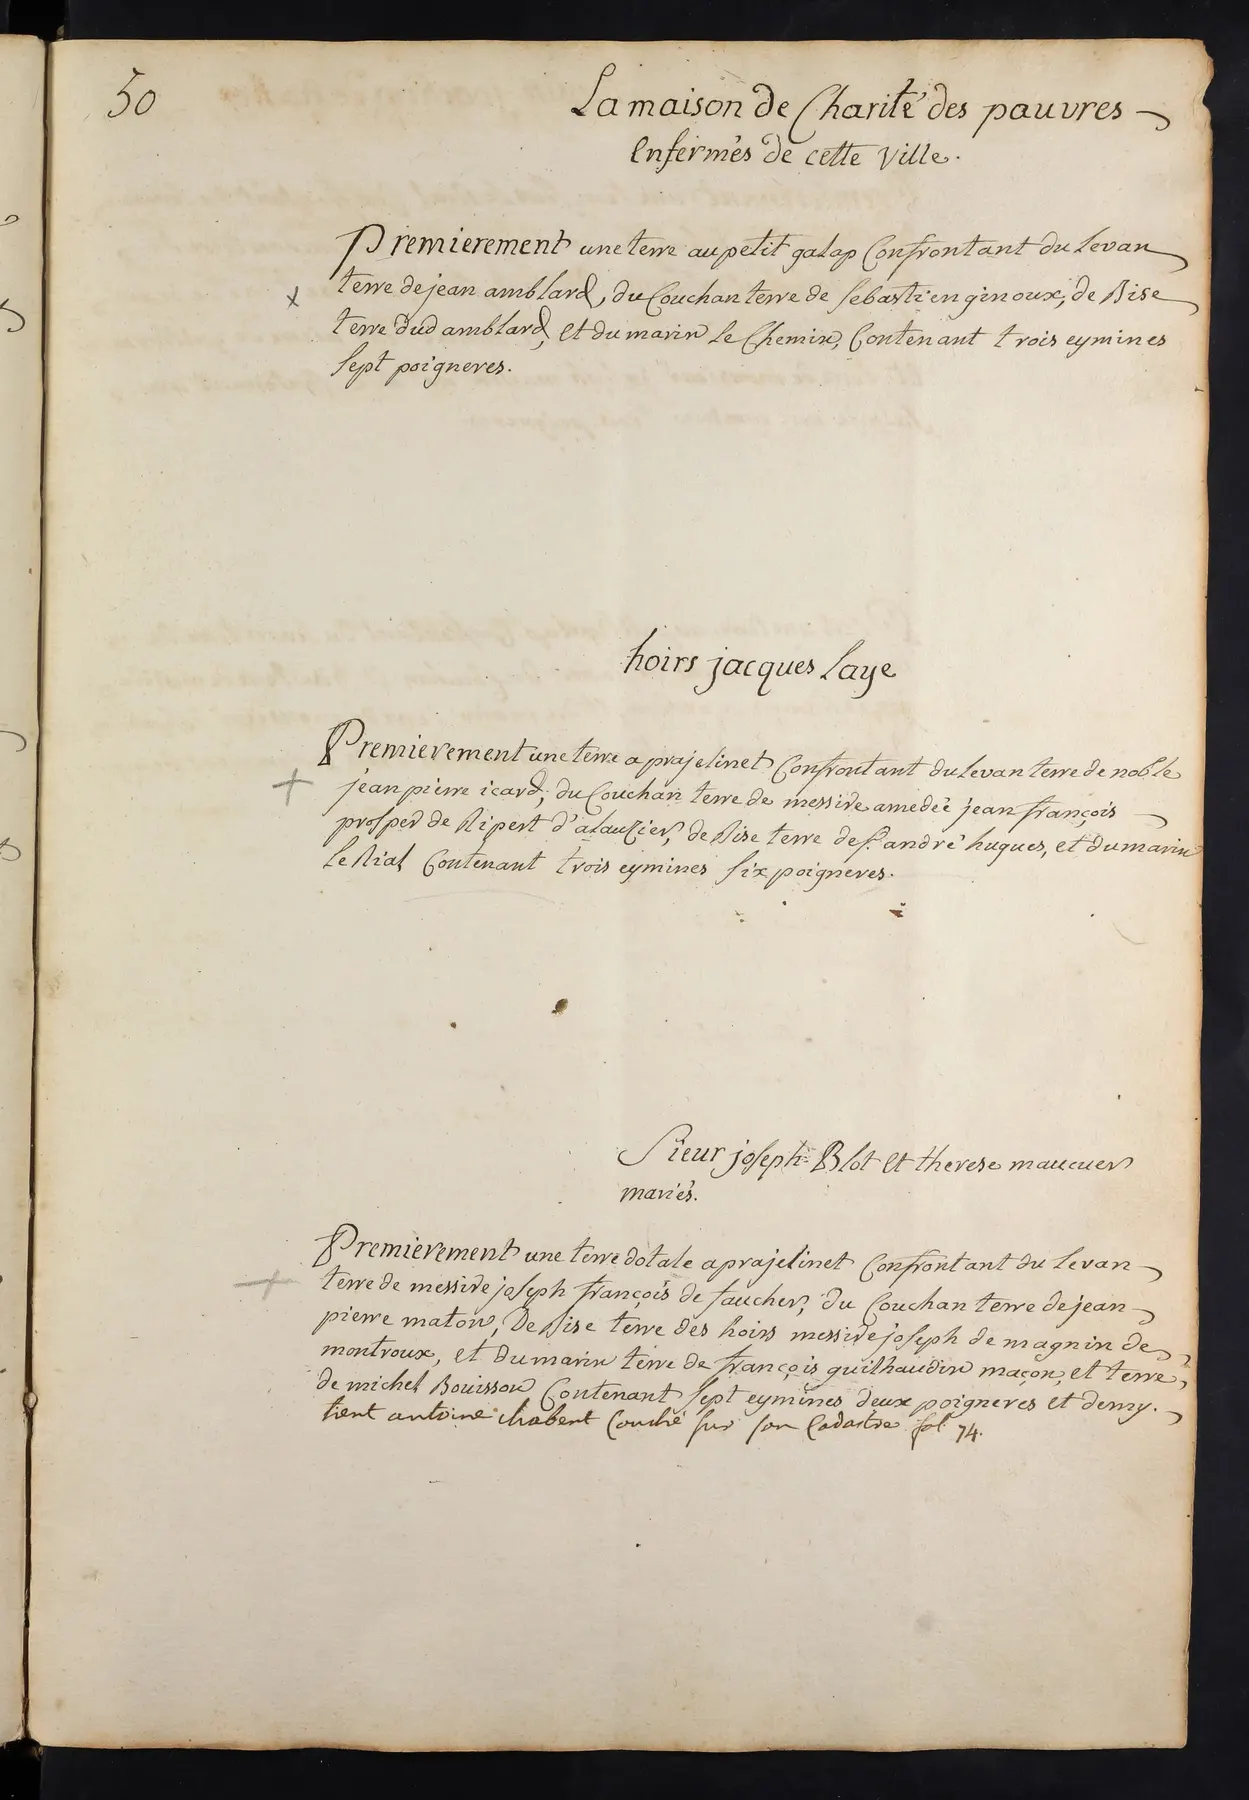 50
La maison de Charité des pauvres
Enfermés de cette Ville.
Premierement une terre au petit galap Confrontant du levan
x terre de jean amblard, du Couchan terre de sebastien ginoux, de Bise
terre dud amblard, et du marin le Chemin, Contenant trois eymines
sept poigneres.
hoirs jacques laye
Premierement une terre a prajelinet Confrontant du levan terre de noble
+ jean pierre icard, du Couchan terre de messire amedée jean françois
prosper de Ripert d'alauzier, de Bise terre de s. andré hugues, et du marin
le Rial Contenant trois eymines six poigneres.
Sieur joseph Blot et therese maucuer
mariés.
Premierement une terre dotale a prajelinet Confrontant du levan
+ terre de messire joseph françois de faucher, du Couchan terre de jean
pierre maton, De Bise terre des hoirs messire joseph de magnin de
montroux, et du marin terre de françois guilhaudin maçon, et terre
de michel Bouisson Contenant sept eymines deux poigneres et demy.
tient antoine chabert Couché sur son Cadastre fol. 74.